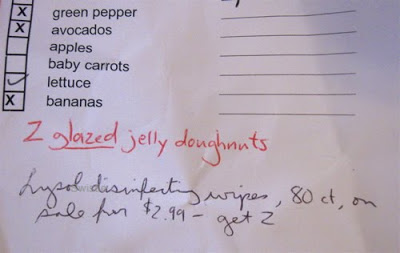 X green pepper
X avocados
apples
baby carrots
✓ lettuce
X bananas
2 glazed jelly doughnuts
Lysol disinfecting wipes, 80 ct, on
sale for $2.99 - get 2